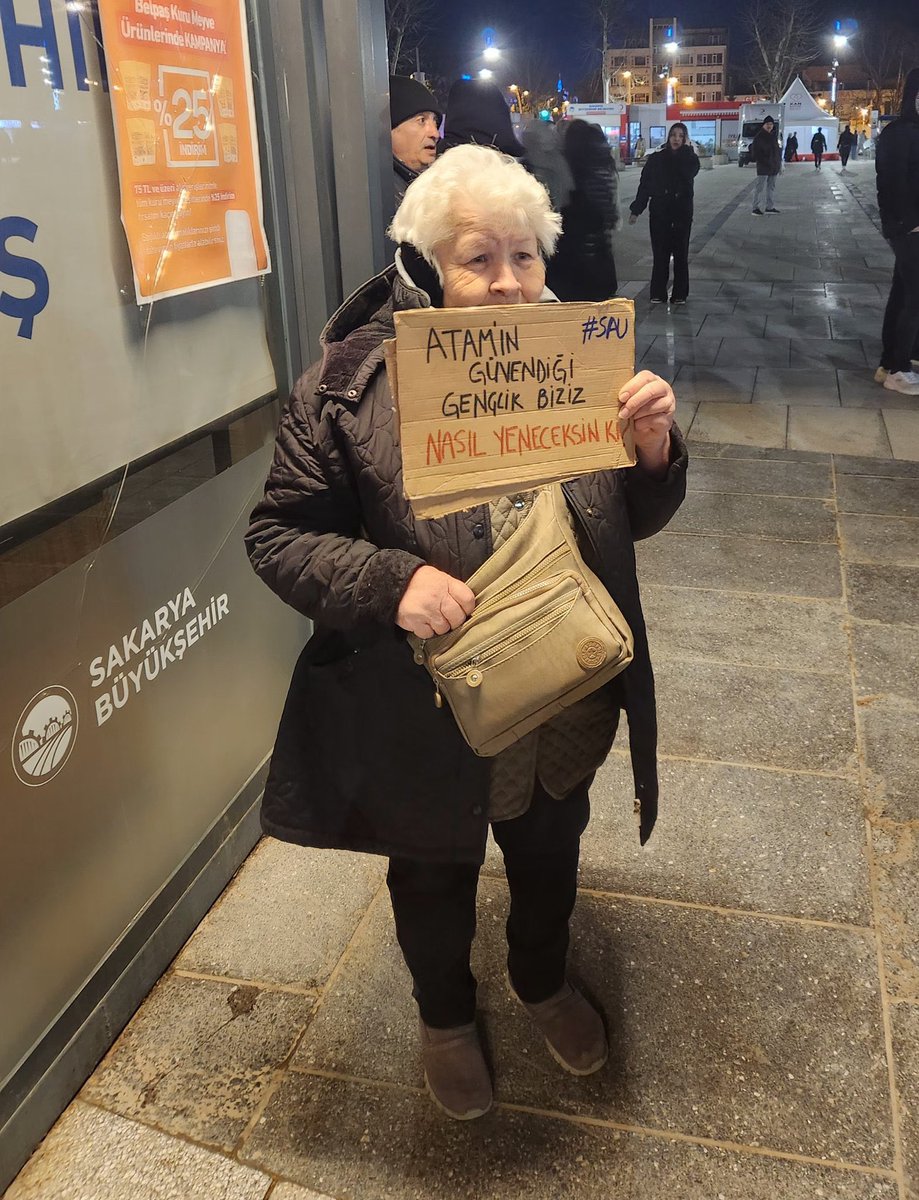 Belpaş Kuru Meyve
Ürünlerinde KAMPANYA
%25
İNDİRİM
75 TL ve üzeri
Ş
ATAM'IN
#SAU
GÜVENDİĞİ
GENÇLİK BİZİZ
NASIL YENECEKSİN
SAKARYA
BÜYÜKŞEHİR